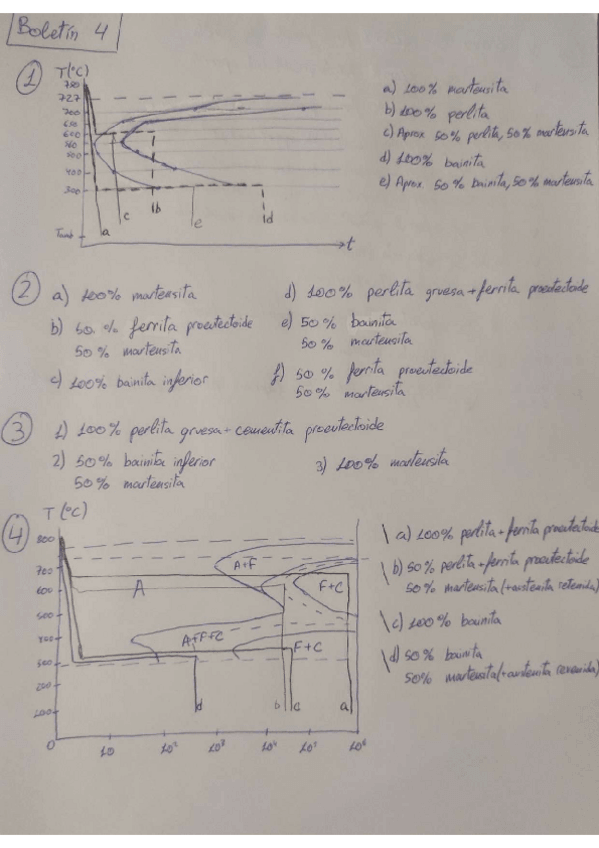 Boletín 4
1
T(ºC)
750
727
700
650
600
500
400
300
Tamb
a
c
b
e
d
t
a) 100% martensita
b) 100% perlita
c) Aprox 50% perlita, 50% martensita
d) 100% bainita
e) Aprox. 50% bainita, 50% martensita
2
a) 100% martensita
b) 50 % ferrita proeutectoide
50% martensita
c) 100% bainita inferior
d) 100% perlita gruesa + ferrita proeutectoide
e) 50% bainita
50% martensita
f) 50% ferrita proeutectoide
50% martensita
3
1) 100% perlita gruesa + cementita proeutectoide
2) 50% bainita inferior
50% martensita
3) 100% martensita
4
T(ºC)
800
700
600
500
400
300
200
100
0
10
10²
10³
10⁴
10⁵
10⁶
A
A+F
F+C
A+F+C
F+C
d
b
c
a
a) 100% perlita + ferrita proeutectoide
b) 50% perlita + ferrita proeutectoide
50% martensita (+austenita retenida)
c) 100% bainita
d) 50% bainita
50% martensita (+austenita retenida)